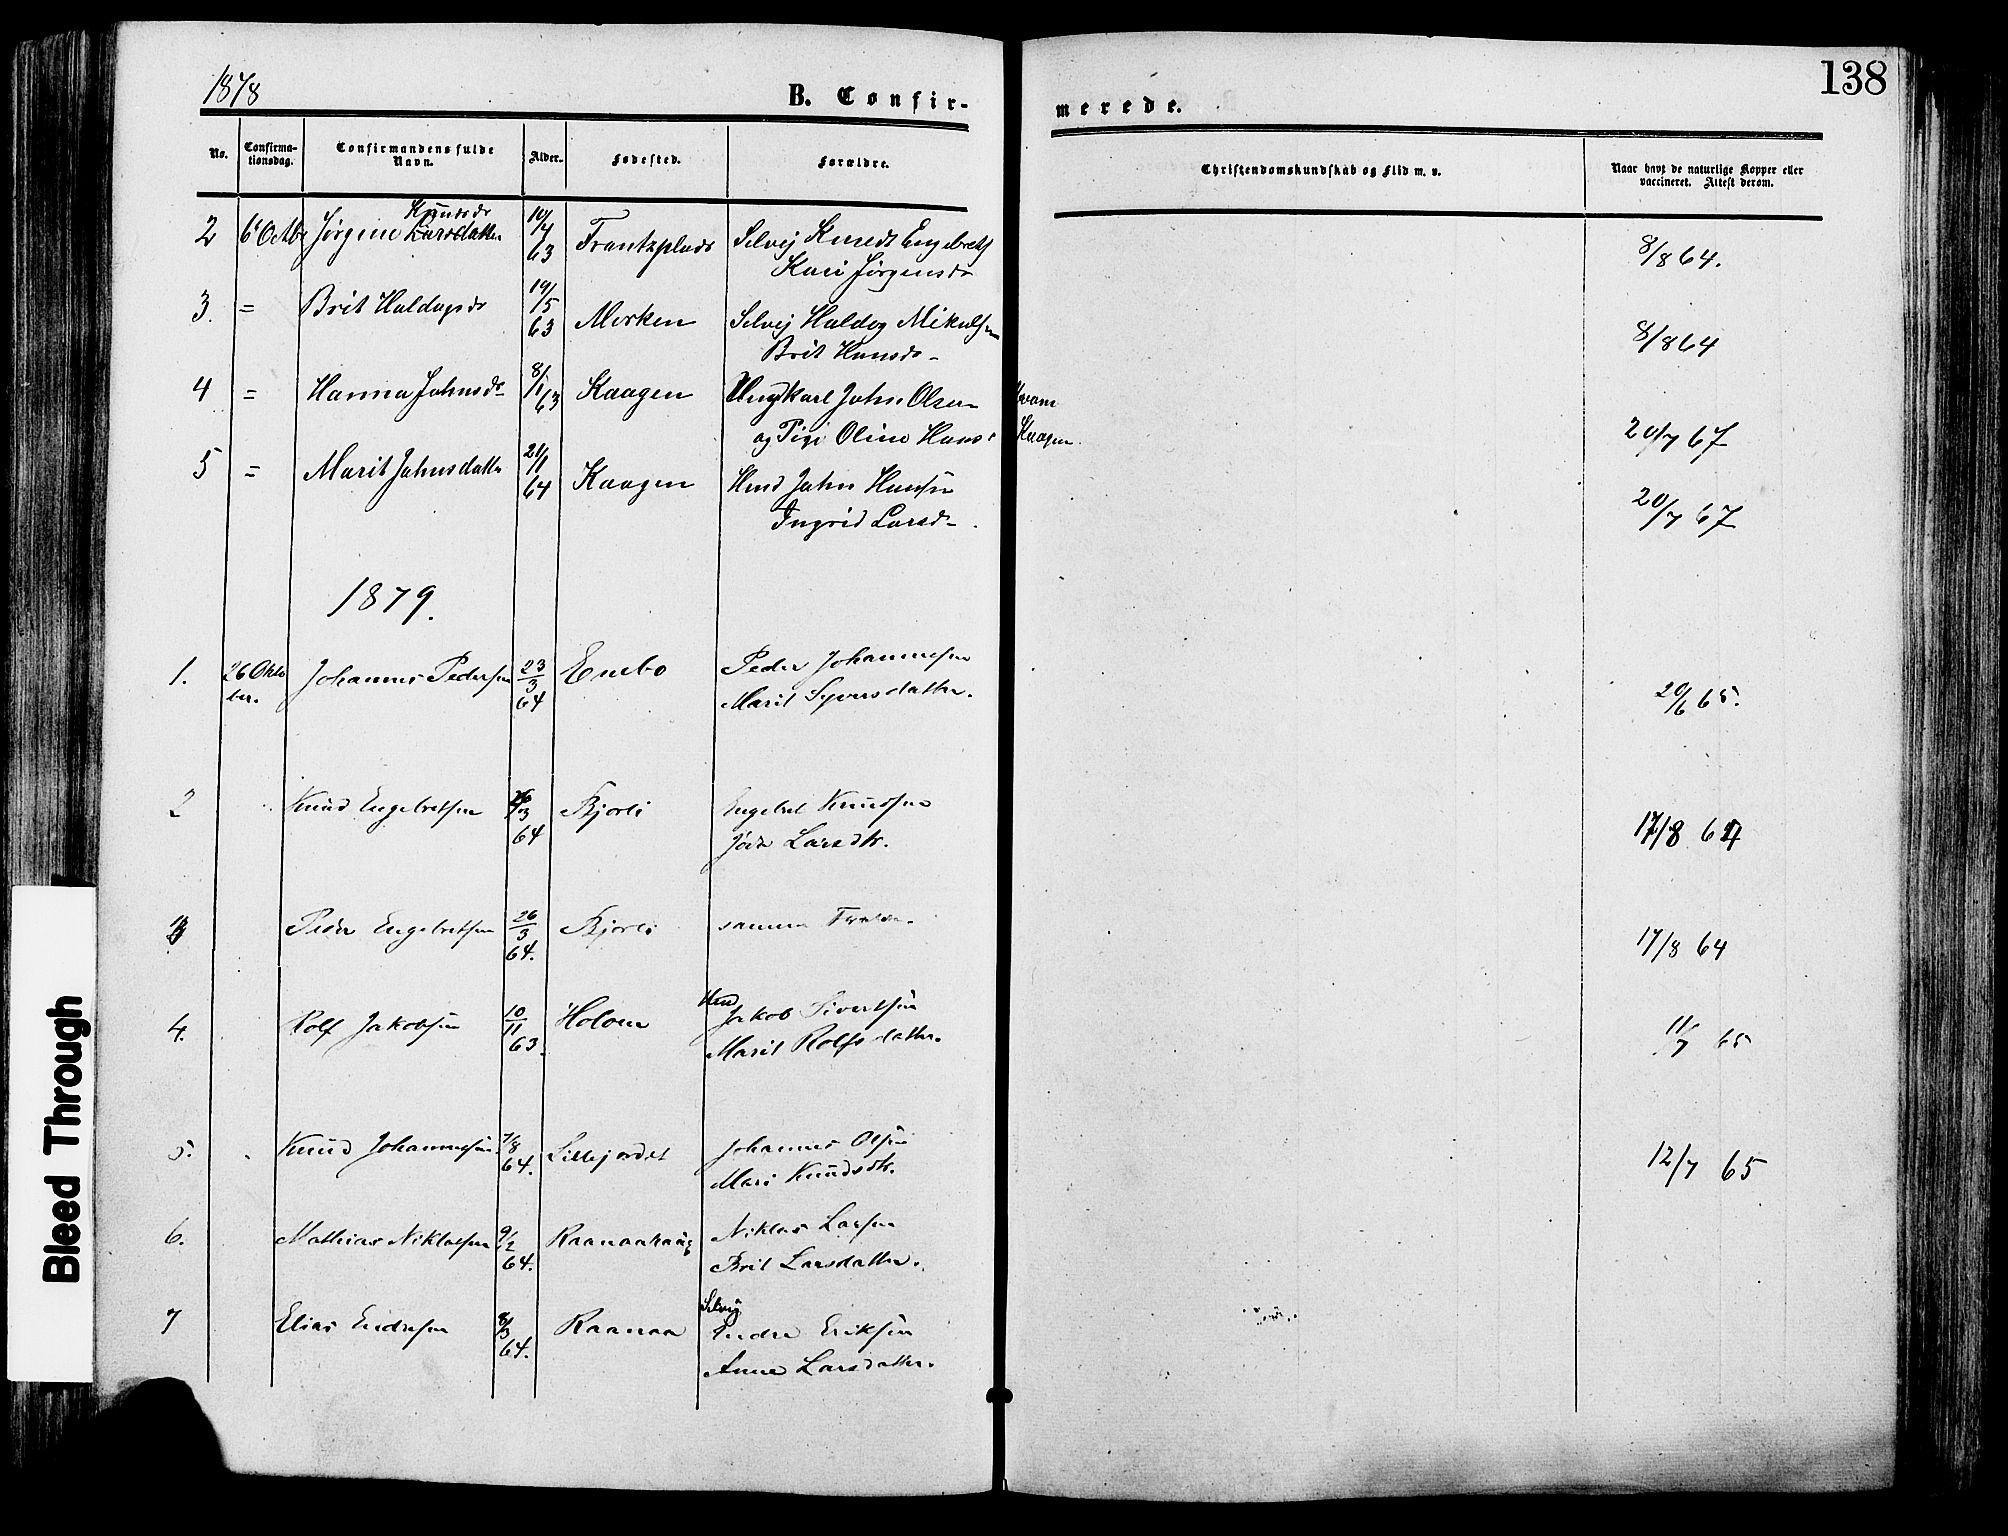 1878
B. Confir-
No.
Confirma-
tionsdag.
Confirmandens fulde
Navn.
Alder.
Fødested.
Forældre.
2 6 Octbr Jørgine Knudsdr Larsdatter 10/4 63 Frantzplads Selvej Knud Engebrets
Kari Jørgensdr
3. = Brit Haldogsdr 19/5 63 Merken Selvej Haldog Mikelsen
Brit Hansdr
4 = Hanna Johnsdr 8/1 63 Kaagen Ungkarl John Olsen
og Pige Oline Hansd
5 = Marit Johnsdatter 21/1 64 Kaagen Hmd John Hansen
Ingrid Larsd
1879.
1. 26 Okto
ber. Johannes Pedersen 23/3 64 Enebo Peder Johannesen
Marit Syversdatter.
2 Knud Engebretsen 26/3 64 Bjorli Engebret Knudsen
Larsdtr.
3 Peder Engebretsen 26/3 64. Bjorli samme
4. Rolf Jakobsen 10/11 63. Holen Hmd
Jakob Sivertsen
Marit Rolfsdatter.
5. Knud Johannesen 7/8 64. Lillejordet Johannes Olsen
Mari Knudsdtr.
6. Mathias Niklasen 9/2 64. Raanaahaug Niklas Larsen
Brit Larsdatter.
7 Elias Endresen 8/3 64. Raanaa Selvej
Endre Eriksen
Anne Larsdatter.
138
merede.
Christendomskundskab og Flid m. v.
Naar havt de naturlige Kopper eller
vaccineret. Attest derom.
8/8 64.
8/8 64
Kaagen
20/7 67
20/7 67
20/6 65.
17/8 64
17/8 64
11/7 65
12/7 65
Bleed Through